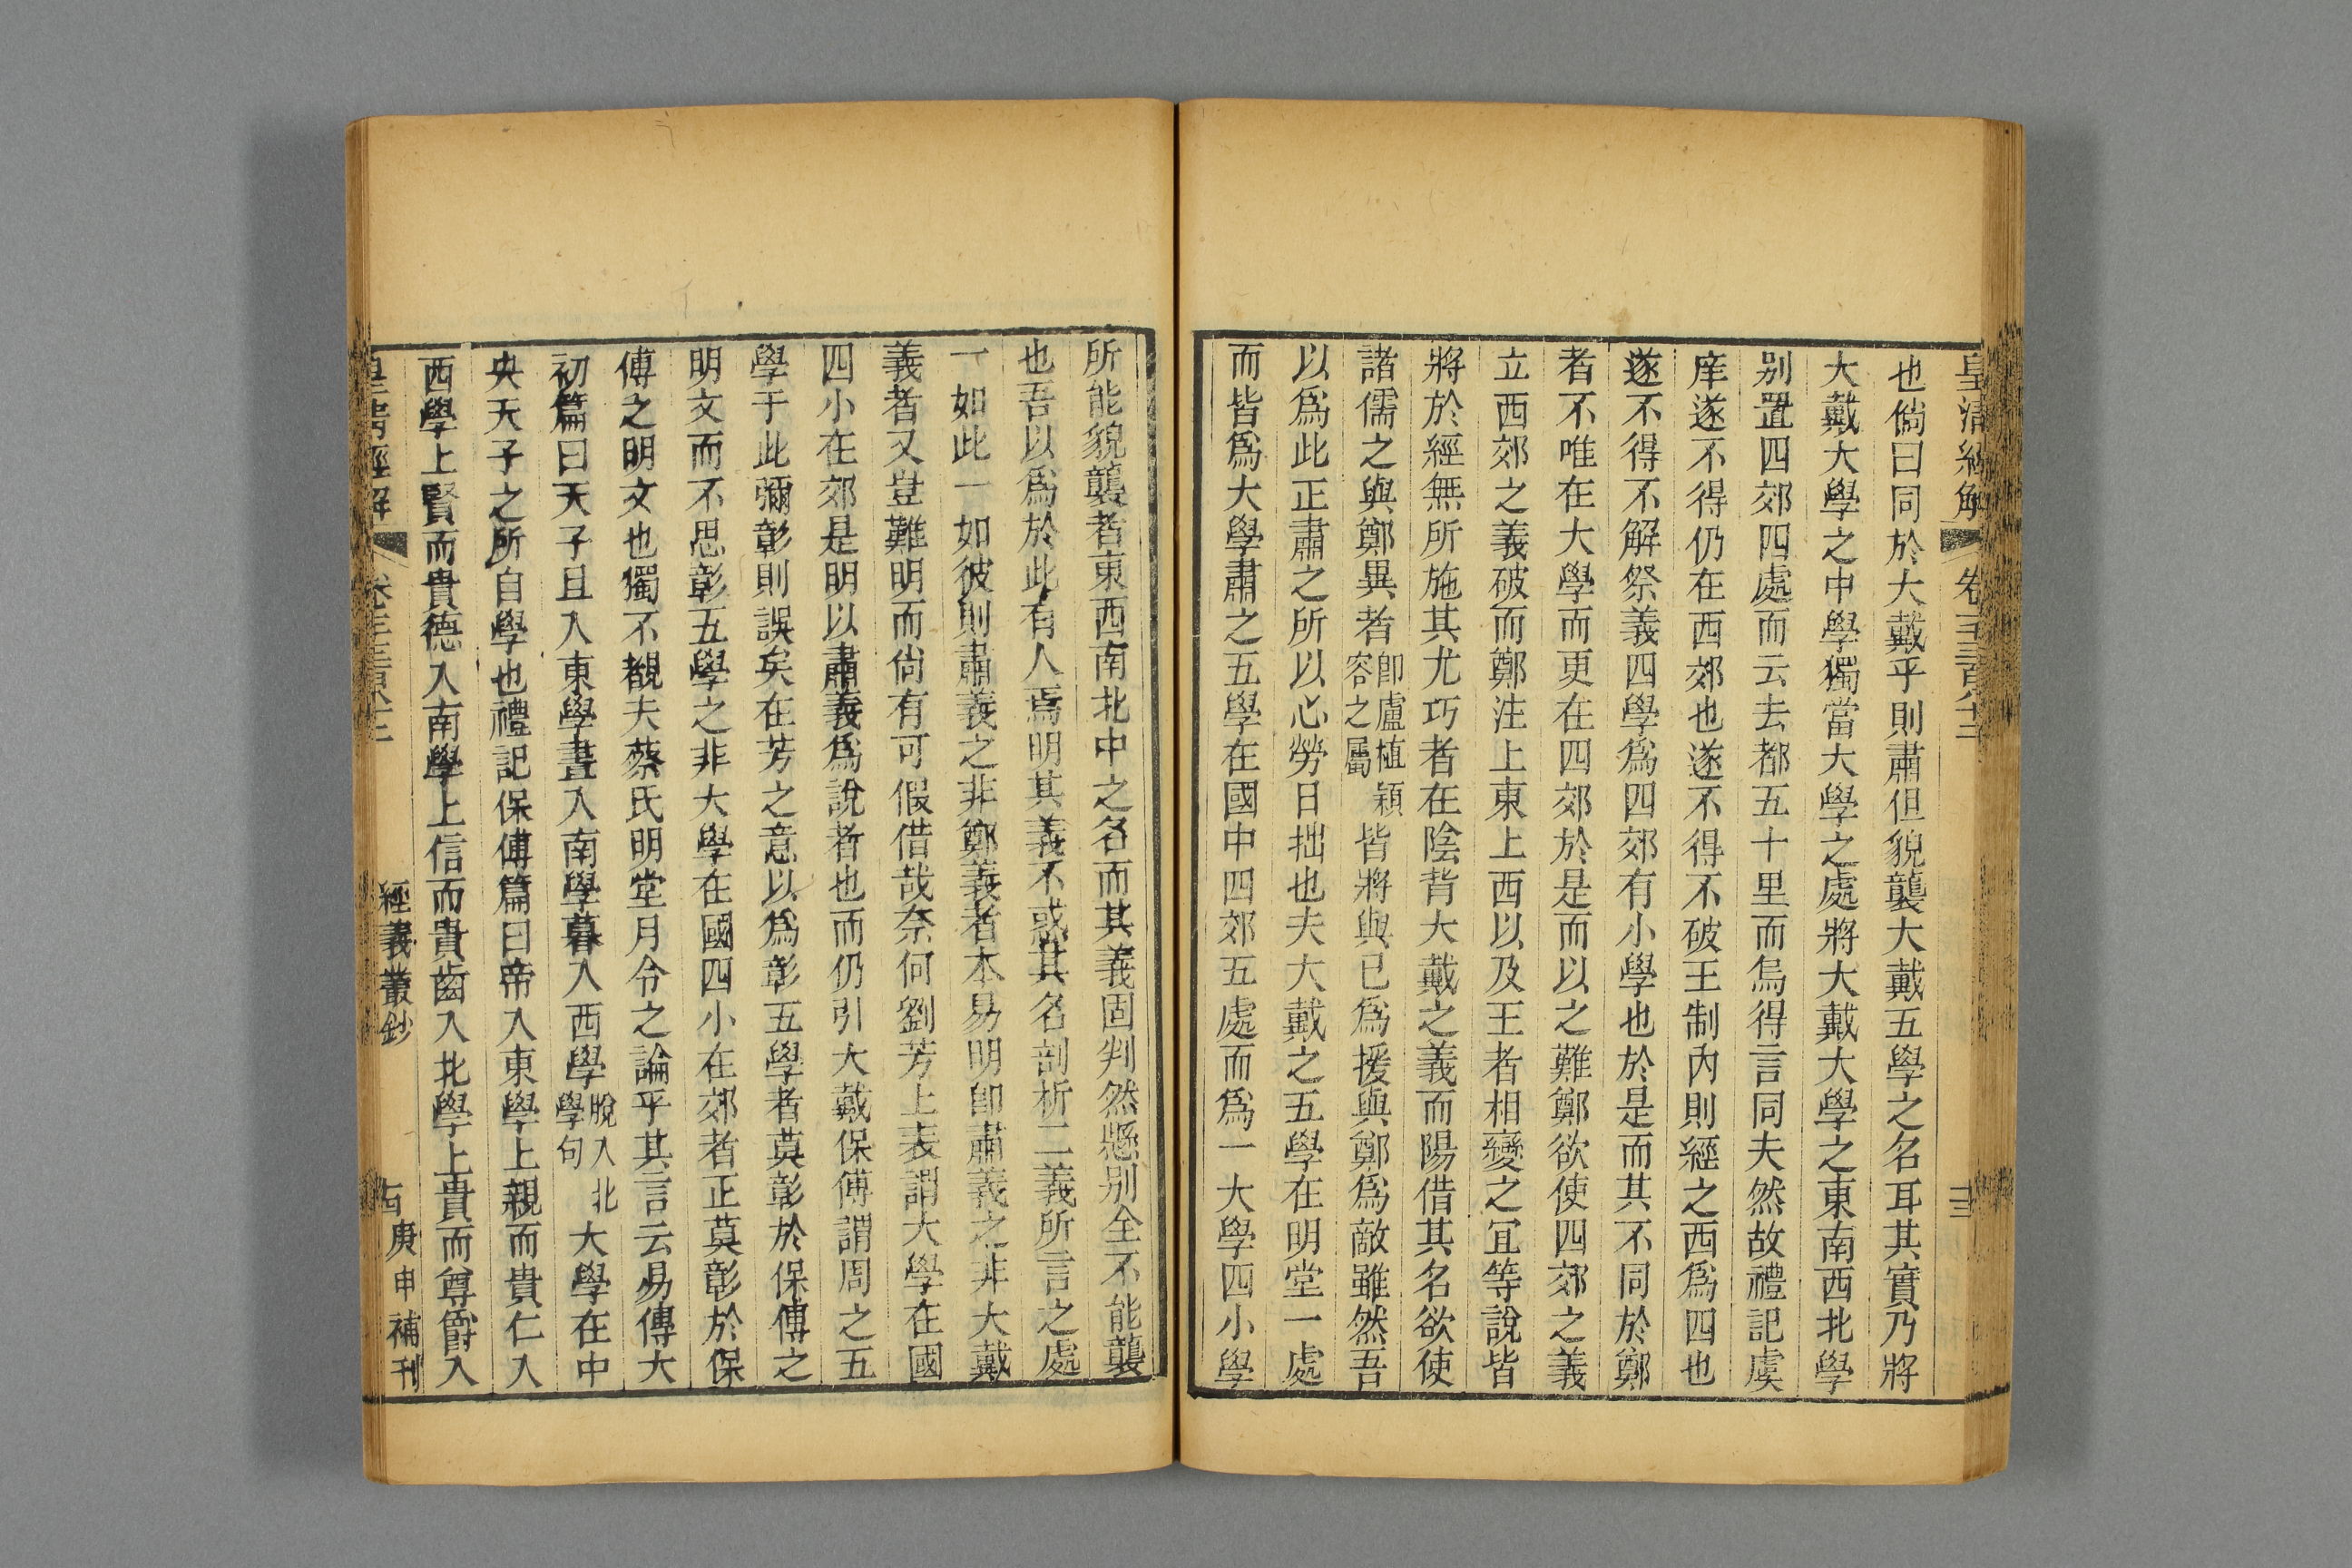 皇清經解
也倘曰同於大戴乎則肅但貌襲大戴五學之名耳其實乃將
大戴大學之中學獨當大學之處將大戴大學之東南西北學
別置四郊四處而云去都五十里而烏得言同夫然故禮記虞
庠遂不得仍在西郊也遂不得不破王制內則經之西爲四也
遂不得不解祭義四學爲四郊有小學也於是而其不同於鄭
者不唯在大學而更在四郊於是而以之難鄭欲使四郊之義
立西郊之義破而鄭注上東上西以及王者相變之宜等說皆
將於經無所施其尤巧者在陰背大戴之義而陽借其名欲使
諸儒之與鄭異者卽盧植穎容之屬皆將與已爲援與鄭爲敵雖然吾
以爲此正肅之所以心勞日拙也夫大戴之五學在明堂一處
而皆爲大學肅之五學在國中四郊五處而爲一大學四小學
所能貌襲者東西南北中之名而其義固判然懸別全不能襲
也吾以爲於此有人焉明其義不惑其名剖析二義所言之處
一如此一如彼則肅義之非鄭義者本易明卽肅義之非大戴
義者又豈難明而尙有可假借哉奈何劉芳上表謂大學在國
四小在郊是明以肅義爲說者也而仍引大戴保傅謂周之五
學于此彌彰則誤矣在芳之意以爲彰五學者莫彰於保傅之
明文而不思彰五學之非大學在國四小在郊者正莫彰於保
傅之明文也獨不覩夫蔡氏明堂月令之論乎其言云易傳大
初篇曰天子旦入東學晝入南學暮入西學脫入北學句大學在中
央天子之所自學也禮記保傅篇曰帝入東學上親而貴仁入
西學上賢而貴德入南學上信而貴齒入北學上貴而尊爵入
皇清經解
經義叢鈔
庚申補刊